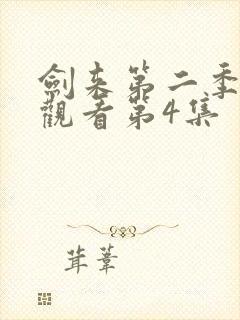 劍来第二季
觀看第4集
茸葦